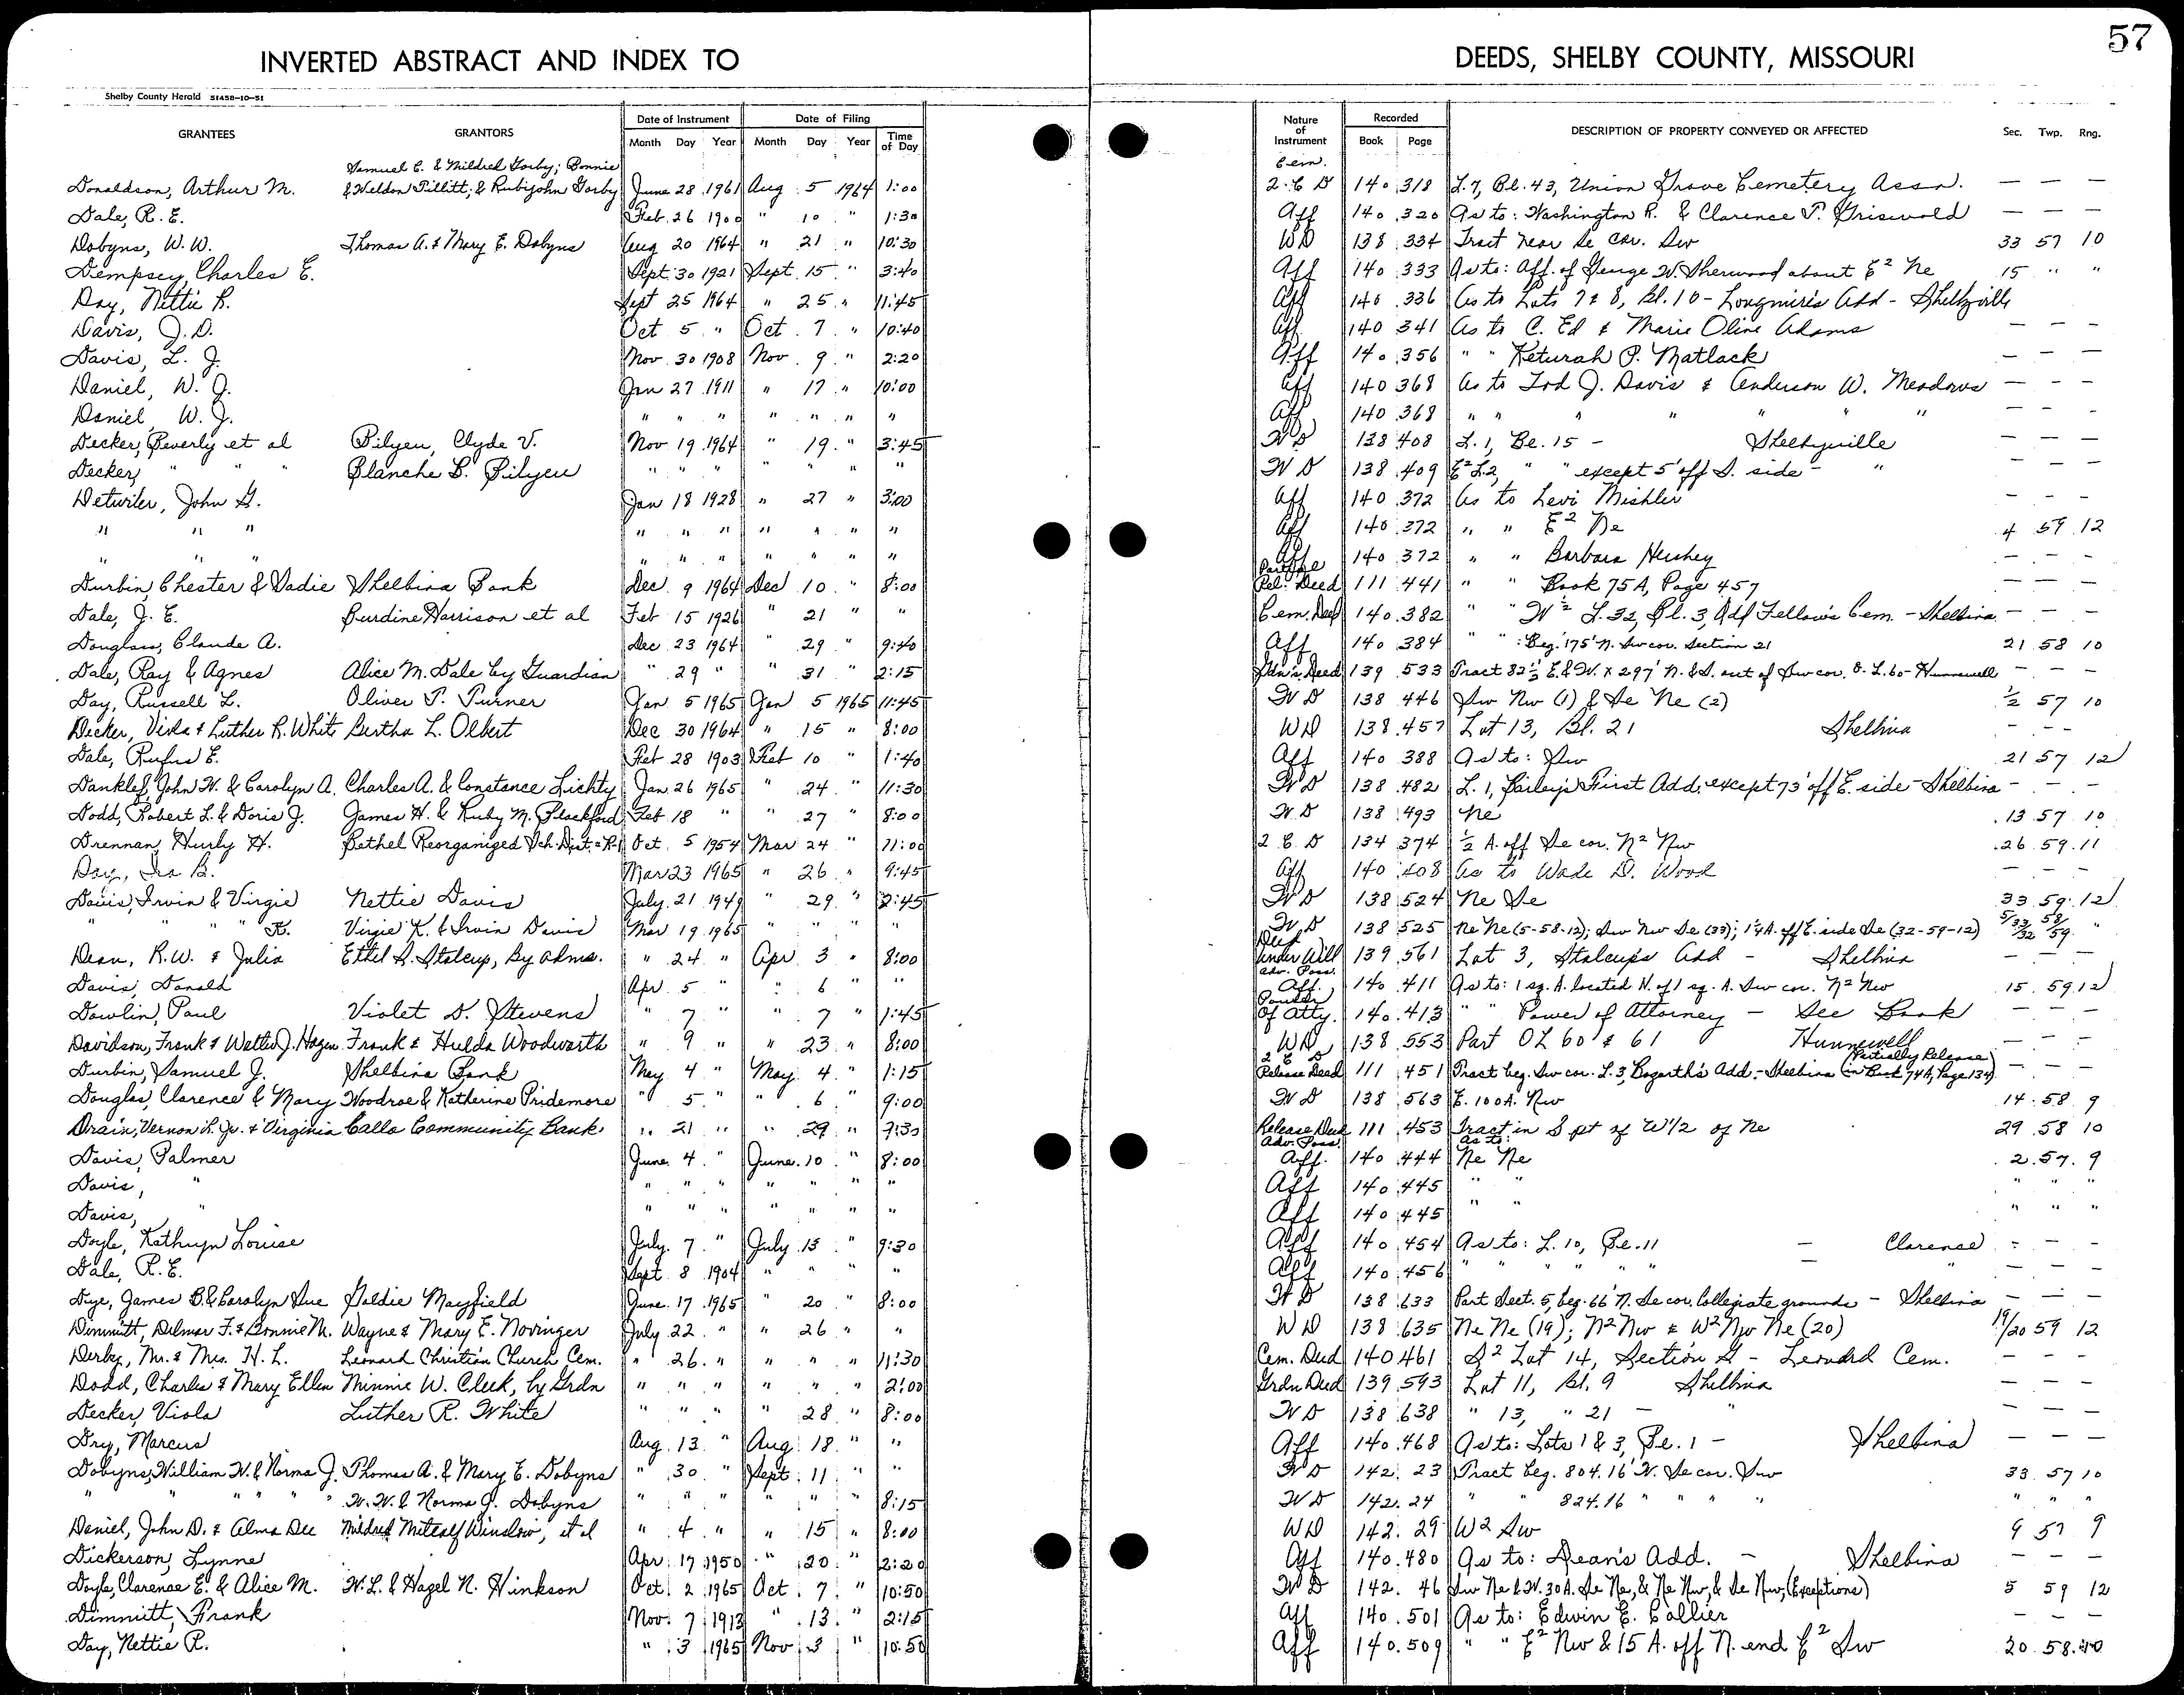 57
INVERTED ABSTRACT AND INDEX TO DEEDS, SHELBY COUNTY, MISSOURI
Shelby County Herald 51458-10-51
GRANTEES GRANTORS Date of Instrument Date of Filing Nature of Instrument Recorded DESCRIPTION OF PROPERTY CONVEYED OR AFFECTED Sec. Twp. Rng.
Month Day Year Month Day Year Time of Day Book Page
Samuel C. & Mildred Gorby; Bonnie Cem.
Donaldson, Arthur M. & Weldon Tillitt; & Rubyjohn Gorby June 28 1961 Aug 5 1964 1:00 2. C D 140 318 L. 7, Bl. 43, Union Grove Cemetery Assn. — — —
Dale, R. E. Feb. 26 1900 " 10 " 1:30 Aff 140 320 As to: Washington R. & Clarence T. Griswold — — —
Dobyns, W. W. Thomas A. & Mary E. Dobyns Aug 20 1964 " 21 " 10:30 WD 138 334 Tract near Se cor. Sw 33 57 10
Dempsey, Charles E. Sept. 30 1921 Sept. 15 " 3:40 Aff 140 333 As to: Aff. of George W. Sherwood about E² Ne 15 " "
Day, Nettie R. Sept 25 1964 " 25 " 11:45 Aff 140 336 As to Lots 7 & 8, Bl. 10 - Longmire's Add - Shelbyville
Davis, J. D. Oct 5 " Oct. 7 " 10:40 Aff 140 341 As to C. Ed & Marie Oline Adams — — —
Davis, L. J. Nov. 30 1908 Nov. 9 " 2:20 Aff 140 356 " " Keturah P. Matlack — — —
Daniel, W. J. Jan 27 1911 " 17 " 10:00 Aff 140 368 As to Tod J. Davis & Anderson W. Meadows — — —
Daniel, W. J. " " " " " " " Aff 140 368 " " " " " " " — — —
Decker, Beverly et al Bilyeu, Clyde V. Nov 19 1964 " 19 " 3:45 WD 138 408 L. 1, Bl. 15 - Shelbyville — — —
Decker, " " Blanche B. Bilyeu " " " " " " " WD 138 409 E² L2, " " except 5' off S. side - " — — —
Detwiler, John G. Jan 18 1928 " 27 " 3:00 Aff 140 372 As to Levi Mishler — — —
" " " " " " " " " " Aff 140 372 " " E² Ne 4 59 12
" " " " " " " " " " Aff 140 372 " " Barbara Hershey — — —
Durbin, Chester & Sadie Shelbina Bank Dec 9 1964 Dec 10 " 8:00 Partial Rel. Deed 111 441 " " Book 75A, Page 457 — — —
Dale, J. E. Burdine Harrison et al Feb 15 1926 " 21 " " Cem. Deed 140 382 " " W½ L. 32, Bl. 3, Odd Fellows Cem. - Shelbina — — —
Douglass, Claude A. Dec 23 1964 " 29 " 9:40 Aff 140 384 " " : Beg. 175' N. Sw cor. Section 21 21 58 10
Dale, Ray & Agnes Alice M. Dale by Guardian " 29 " " 31 " 2:15 Gdn's Deed 139 533 Tract 82½' E. & W. x 297' N. & S. out of Sw cor. O. L. 60 - Hunnewell — — —
Day, Russell L. Oliver T. Turner Jan 5 1965 Jan 5 1965 11:45 WD 138 446 Sw Nw (1) & Se Ne (2) ½ 57 10
Decker, Viola & Luther R. White Bertha L. Olbert Dec 30 1964 " 15 " 8:00 WD 138 457 Lot 13, Bl. 21 Shelbina — — —
Dale, Rufus E. Feb 28 1903 Feb 10 " 1:40 Aff 140 388 As to: Sw 21 57 12
Danklef, John H. & Carolyn A. Charles A. & Constance Lichty Jan. 26 1965 " 24 " 11:30 WD 138 482 L. 1, Parley's First Add; except 73' off E. side - Shelbina — — —
Dodd, Robert L. & Doris J. James H. & Ruby M. Blackford Feb 18 " " 27 " 8:00 WD 138 493 Ne 13 57 10
Drennan, Hurly H. Bethel Reorganized Sch. Dist. = R-1 Oct. 5 1954 Mar 24 " 11:00 2 C D 134 374 ½ A. off Se cor. N² Nw 26 59 11
Day, Ira B. Mar 23 1965 " 26 " 9:45 Aff 140 408 As to Wade D. Wood — — —
Davis, Irvin & Virgie Nettie Davis July 21 1949 " 29 " 2:45 WD 138 524 Ne Se 33 59 12
" " " K. Virgie K. & Irvin Davis Mar 19 1965 " " " " WD 138 525 Ne Ne (5-58-12); Sw Nw Se (33); 1¼ A. off E. side Se (32-59-12) 5/33/32 58/59 "
Dean, R. W. & Julia Ethel S. Stalcup, By Adms. " 24 " Apr 3 " 8:00 Deed Under Will 139 561 Lot 3, Stalcups Add - Shelbina — — —
Davis, Donald Apr. 5 " " 6 " " Adv. Poss. Aff. 140 411 As to: 1 sq. A. located N. of 1 sq. A. Sw cor. N² Nw 15 59 12
Dowlin, Paul Violet D. Stevens " 7 " " 7 " 1:45 Power Of Atty. 140 413 " " Power of Attorney - See Book — — —
Davidson, Frank & Walter J. Hagen Frank & Hulda Woodworth " 9 " " 23 " 8:00 WD 138 553 Part OL 60 & 61 Hunnewell — — —
Durbin, Samuel J. Shelbina Bank May 4 " May 4 " 1:15 2 C D Release Deed 111 451 Tract beg. Sw cor. L. 3, Bogarth's Add. - Shelbina (Partially Release in Book 74A, Page 134) — — —
Douglas, Clarence & Mary Woodroe & Katherine Pridemore " 5 " " 6 " 9:00 WD 138 563 E. 100A. Nw 14 58 9
Drain, Vernon L. Jr. & Virginia Callo Community Bank " 21 " " 29 " 9:30 Release Deed 111 453 Tract in S pt of W½ of Ne 29 58 10
Davis, Palmer June 4 " June 10 " 8:00 Adv. Poss. Aff. 140 444 As to: Ne Ne 2 57 9
Davis, " " " " " " " " Aff 140 445 " " " " "
Davis, " " " " " " " " Aff 140 445 " " " " "
Doyle, Kathryn Louise July 7 " July 13 " 9:30 Aff 140 454 As to: L. 10, Bl. 11 - Clarence — — —
Dale, R. E. Sept 8 1904 " " " " Aff 140 456 " " " " " — " — — —
Dye, James B. & Carolyn Sue Goldie Mayfield June 17 1965 " 20 " 8:00 WD 138 633 Part Sect. 5, beg. 66' N. Se cor. Collegiate grounds - Shelbina — — —
Dimmitt, Delmar F. & Bonnie M. Wayne & Mary E. Novinger July 22 " " 26 " " WD 138 635 Ne Ne (19); N² Nw & W² Nw Ne (20) 19/20 59 12
Derby, Mr. & Mrs. H. L. Leonard Christian Church Cem. " 26 " " " " 11:30 Cem. Deed 140 461 S² Lot 14, Section G - Leonard Cem. — — —
Dodd, Charles & Mary Ellen Minnie W. Cleek, by Grdn " " " " " " 2:00 Grdn Deed 139 593 Lot 11, Bl. 9 Shelbina — — —
Decker, Viola Luther R. White " " " " 28 " 8:00 WD 138 638 " 13, " 21 - " — — —
Dry, Marcus Aug. 13 " Aug. 18 " " Aff 140 468 As to: Lots 1 & 3, Bl. 1 - Shelbina — — —
Dobyns, William W. & Norma J. Thomas A. & Mary E. Dobyns " 30 " Sept. 11 " " WD 142 23 Tract beg. 804.16' W. Se cor. Sw 33 57 10
" " " " " W. W. & Norma J. Dobyns " " " " " " 8:15 WD 142 24 " " 824.16 " " " " " " "
Daniel, John D. & Alma Dee Mildred Metcalf Winslow, et al " 4 " " 15 " 8:00 WD 142 29 W² Sw 9 57 9
Dickerson, Lynne Apr. 17 1950 " 20 " 2:20 Aff 140 480 As to: Dean's Add. - Shelbina — — —
Doyle, Clarence E. & Alice M. W. L. & Hazel N. Hinkson Oct. 2 1965 Oct. 7 " 10:50 WD 142 46 Sw Ne & W. 30A. Se Ne, & Ne Nw, & Se Nw, (Exceptions) 5 59 12
Dimmitt, Frank Nov. 7 1913 " 13 " 2:15 Aff 140 501 As to: Edwin E. Collier — — —
Day, Nettie R. " 3 1965 Nov 3 " 10:50 Aff 140 509 " " E² Nw & 15 A. off N. end E² Sw 20 58 10